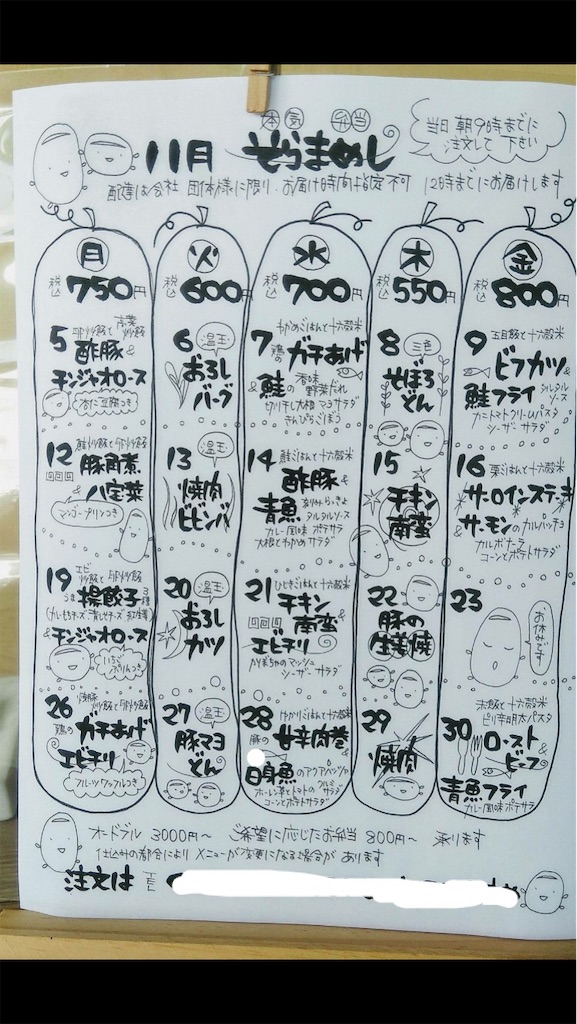 本気 弁当
11月 そらまめし
当日 朝9時までに
注文して 下さい
配達は会社 団体様に限り・お届け時間指定不可 12時までにお届けします
月
税込 750円
5 卵炒飯と高菜炒飯
酢豚&
チンジャオロース
杏仁豆腐つき
12 鮭炒飯と卵炒飯
豚角煮&
八宝菜
マンゴープリンつき
19 エビ炒飯と卵炒飯
揚餃子3種
&
チンジャオロース
いちごぷりんつき
26 焼豚炒飯と卵炒飯
鶏のガチあげ&
エビチリ
フルーツワッフルつき
火
税込 600円
6 温玉
おろし
バーグ
13 温玉
焼肉
ビビンバ
20 温玉
おろし
カツ
27 温玉
豚マヨ
どん
水
税込 700円
7 わかめごはんと十六穀米
鶏のガチあげ&
鮭の香味野菜だれ
切り干し大根マヨサラダ
きんぴらごぼう
14 鮭ごはんと十六穀米
酢豚&
青魚
タルタルソース
カレー風味ポテサラ
大根とわかめサラダ
21 ひじきごはんと十六穀米
チキン
南蛮&
エビチリ
かぼちゃのマッシュ
シーザーサラダ
28 ゆかりごはんと十六穀米
豚の甘辛肉巻&
白身魚のアクアパッツァ
ホーレン草とトマトのサラダ
コーンとポテトサラダ
木
税込 550円
8 三色
そぼろ
どん
15 チキン
南蛮
22 豚の
生姜焼
29 焼肉
金
税込 800円
9 五目飯と十六穀米
ビフカツ&
鮭フライ タルタルソース
カニトマトクリームパスタ
シーザーサラダ
16 栗ごはんと十六穀米
サーロインステーキ&
サーモンのカルパッチョ
カルボナーラ
コーンとポテトサラダ
23 お休みです
30 お赤飯と十六穀米
ピリ辛明太パスタ
ローストビーフ&
青魚フライ
カレー風味ポテサラ
オードブル 3000円〜 ご希望に応じたお弁当 800円〜 承ります
仕込みの都合により メニューが変更になる場合が あります
注文は TEL